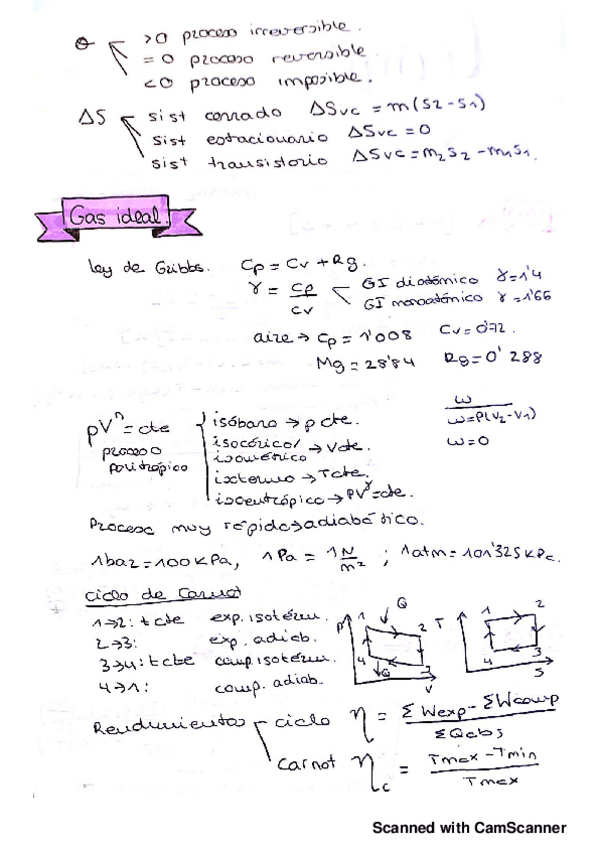 σ >0 proceso irreversible.
=0 proceso reversible.
<0 proceso imposible.
ΔS sist cerrado ΔSvc = m(s2-s1)
sist estacionario ΔSvc=0
sist transistorio ΔSvc=m2s2-m1s1.
Gas ideal.
ley de Gribbs. Cp = Cv + Rg.
γ = cp/cv GI diatómico γ=1'4
GI monoatómico γ=1'66
aire → cp = 1'008 Cv=0'72.
Mg = 28'84 Rg=0'288
w
pVⁿ=cte isóbaro → p cte. w=P(v2-v1)
proceso politrópico isocórico/isométrico → Vcte. w=0
ixtermo → Tcte.
isoentrópico → PVᵞ=cte.
Proceso muy rápido → adiabático.
1baz=100KPa, 1Pa = 1N/m² ; 1atm=101'325KPa.
ciclo de Carnot
1→2: t cte exp. isotérm.
2→3: exp. adiab.
3→4: t cte comp. isotérm.
4→1: comp. adiab.
P 1 Q 2 4 Q 3 V
T 1 2 4 3 S
Rendimientos ciclo η = ΣWexp - ΣWcomp / ΣQabs
Carnot ηc = Tmax - Tmin / Tmax
Scanned with CamScanner